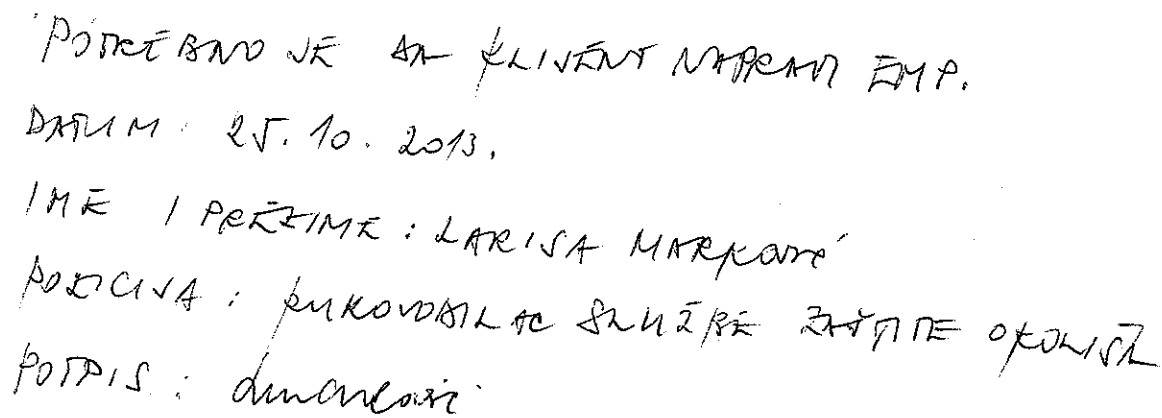 POTREBNO JE DA KLIJENT NAPRAVI EMP.
DATUM: 25.10.2013.
IME I PREZIME: LARISA MARKOVIĆ
POZICIJA: RUKOVODILAC SLUŽBE ZAŠTITE OKOLIŠA
POTPIS: